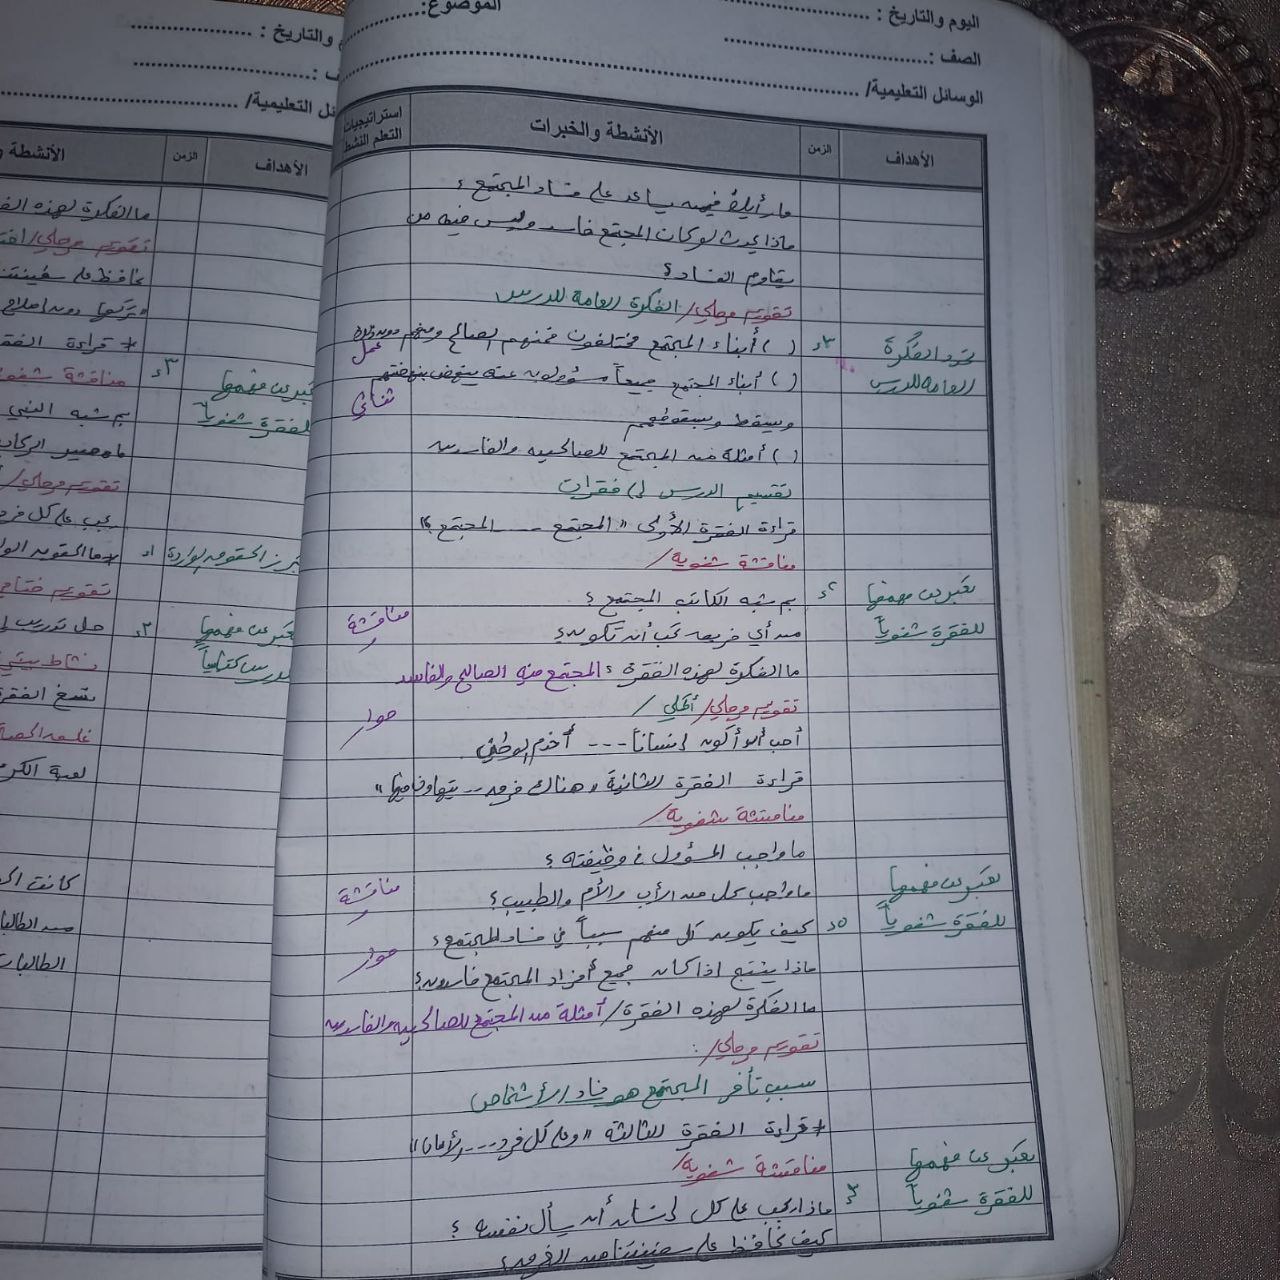 اليوم والتاريخ : ........................ الموضوع:........................
الصف :........................
الوسائل التعليمية/ ........................
الأهداف الزمن الأنشطة والخبرات استراتيجيات التعلم النشط
ما رأيك فيمن يساعد على فساد المجتمع ؟
ماذا يحدث لو كان المجتمع فاسد وليس فيه من
يقاوم الفساد؟
تقويم مرحلي/ الفكرة العامة للدرس
تحدد الفكرة العامة للدرس ٣د ( ) أبناء المجتمع مختلفون فمنهم الصالح ومنهم دون ذلك عمل ثنائي
( ) أبناء المجتمع جميعاً مسؤولون عنه ينهض بنهضتهم
ويسقط بسقوطهم
( ) أمثلة من المجتمع للصالحين والفاسدين
تقسيم الدرس إلى فقرات
قراءة الفقرة الأولى "المجتمع --- المجتمع"
مناقشة شفوية/
تعبر عن فهمها للفقرة شفوياً بم شبه الكاتب المجتمع ؟ مناقشة
من أي فريق تحب أن تكون؟
ما الفكرة لهذه الفقرة ؟ المجتمع فيه الصالح والفاسد
تقويم مرحلي/ أكملي / حوار
أحب أن أكون إنساناً --- أخدم الوطن
قراءة الفقرة الثانية "هناك فرد -- يتهاون فيها"
مناقشة شفوية/
ما واجب المسؤول في وظيفته ؟
تعبر عن فهمها للفقرة شفوياً ٥د ما واجب كل من الأب والأم والطبيب؟ مناقشة
كيف يكون كل منهم سبباً في فساد المجتمع؟ حوار
ماذا ينتج إذا كان جميع أفراد المجتمع فاسدون؟
ما الفكرة لهذه الفقرة/ أمثلة من المجتمع للصالحين والفاسدين
تقويم مرحلي/:
سبب تأخر المجتمع هو فساد الأشخاص
* قراءة الفقرة الثالثة "وعلى كل فرد --- الأمان"
مناقشة شفوية/
تعبر عن فهمها للفقرة شفوياً ٣د ماذا يجب على كل إنسان أن يسأل نفسه ؟
كيف نحافظ على سفينتنا من الغرق؟
والتاريخ : ....................
الأهداف الزمن
ما الفكرة لهذه
تقويم مرحلي/
نحافظ على سفينتنا
* قراءة
تعبر عن فهمها للفقرة شفوياً ٣د مناقشة شفوية
بم شبه النبي
تقويم مرحلي/
يجب على كل فرد
تبرز الحقوق الواردة
تقويم ختامي
تعبر عن فهمها للدرس كتابياً ٣د
نشاط بيتي
نسخ الفقرة
كانت
من الطالبات
الطالبات